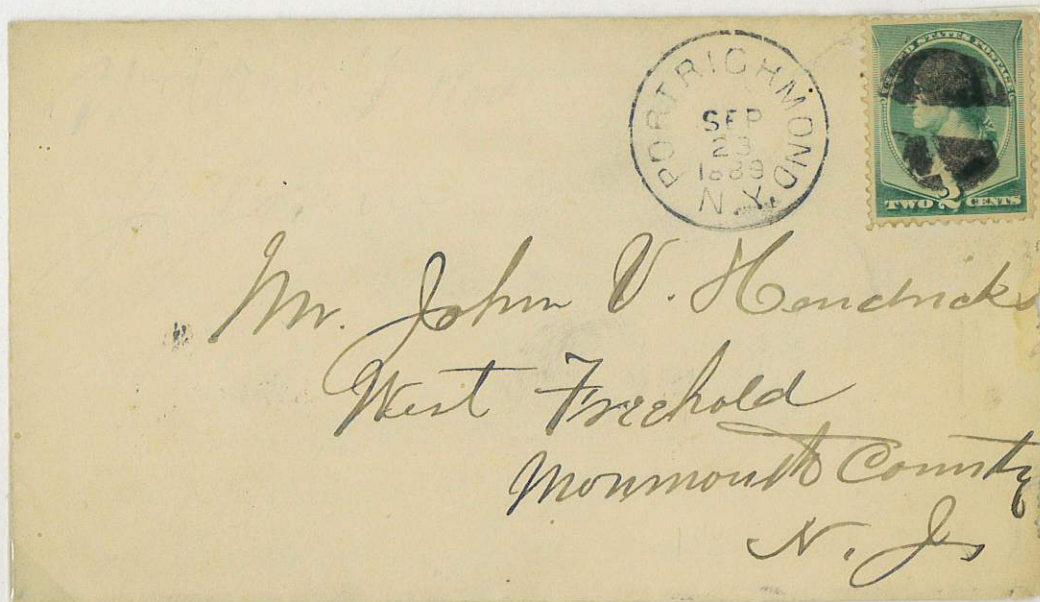 PORT RICHMOND
SEP
23
1889
N.Y.
UNITED STATES POSTAGE
TWO 2 CENTS
Mr. John V. Hendricks
West Freehold
Monmouth County
N. J.